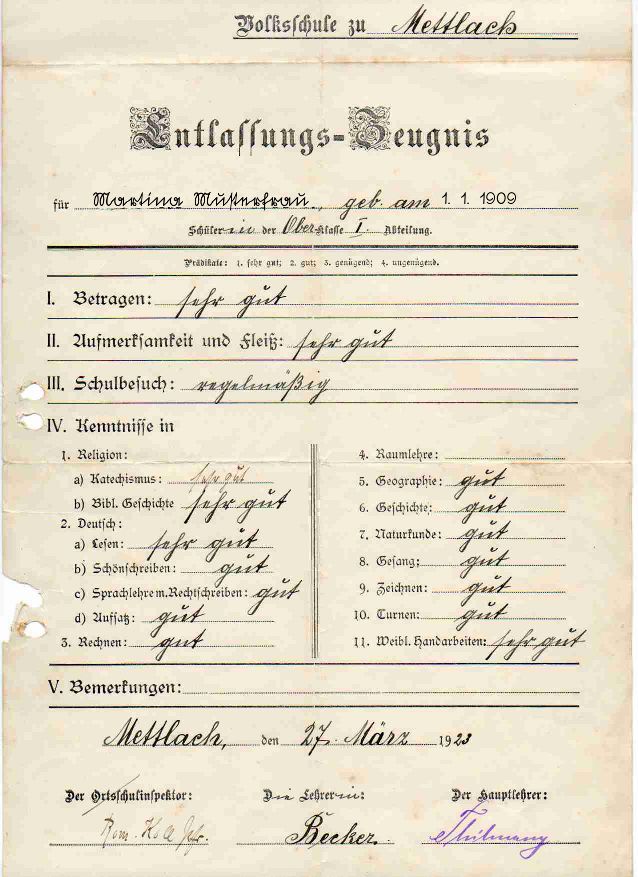 Volksschule zu Mettlach
Entlassungs-Zeugnis
für Martina Musterfrau., geb. am 1. 1. 1909
Schülerin der Ober-Klasse I. Abteilung.
Prädikate: 1. sehr gut; 2. gut; 3. genügend; 4. ungenügend.
I. Betragen: sehr gut
II. Aufmerksamkeit und Fleiß: sehr gut
III. Schulbesuch: regelmäßig
IV. Kenntnisse in
1. Religion:
a) Katechismus: sehr gut
b) Bibl. Geschichte sehr gut
2. Deutsch:
a) Lesen: sehr gut
b) Schönschreiben: gut
c) Sprachlehre m. Rechtschreiben: gut
d) Aufsatz: gut
3. Rechnen: gut
4. Raumlehre:
5. Geographie: gut
6. Geschichte: gut
7. Naturkunde: gut
8. Gesang: gut
9. Zeichnen: gut
10. Turnen: gut
11. Weibl. Handarbeiten: sehr gut
V. Bemerkungen:
Mettlach, den 27. März 1923
Der Ortsschulinspektor: Die Lehrerin: Der Hauptlehrer:
Becker. Thilmany